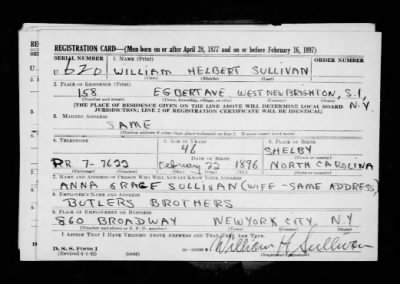 REGISTRATION CARD—(Men born on or after April 28, 1877 and on or before February 16, 1897)
SERIAL NUMBER 1. NAME (Print) ORDER NUMBER
U 620 WILLIAM HELBERT SULLIVAN
(First) (Middle) (Last)
2. PLACE OF RESIDENCE (Print)
158 EGBERT AVE WEST NEW BRIGHTON, S.I., N.Y.
(Number and street) (Town, township, village, or city) (County) (State)
[THE PLACE OF RESIDENCE GIVEN ON THE LINE ABOVE WILL DETERMINE LOCAL BOARD
JURISDICTION; LINE 2 OF REGISTRATION CERTIFICATE WILL BE IDENTICAL]
3. MAILING ADDRESS
SAME
(Mailing address if other than place indicated on line 2. If same insert word same)
4. TELEPHONE 5. AGE IN YEARS 6. PLACE OF BIRTH
46 SHELBY
DATE OF BIRTH
PR 7-7622 February 22 1896 NORTH CAROLINA
(Exchange) (Number) (Mo.) (Day) (Yr.) (State or country)
7. NAME AND ADDRESS OF PERSON WHO WILL ALWAYS KNOW YOUR ADDRESS
ANNA GRACE SULLIVAN (WIFE - SAME ADDRESS)
8. EMPLOYER'S NAME AND ADDRESS
BUTLERS BROTHERS
9. PLACE OF EMPLOYMENT OR BUSINESS
860 BROADWAY NEW YORK CITY, N.Y
(Number and street or R. F. D. number) (Town) (County) (State)
I AFFIRM THAT I HAVE VERIFIED ABOVE ANSWERS AND THAT THEY ARE TRUE.
D. S. S. Form 1
(Revised 4-1-42) (over) William H Sullivan
(Registrant's signature)